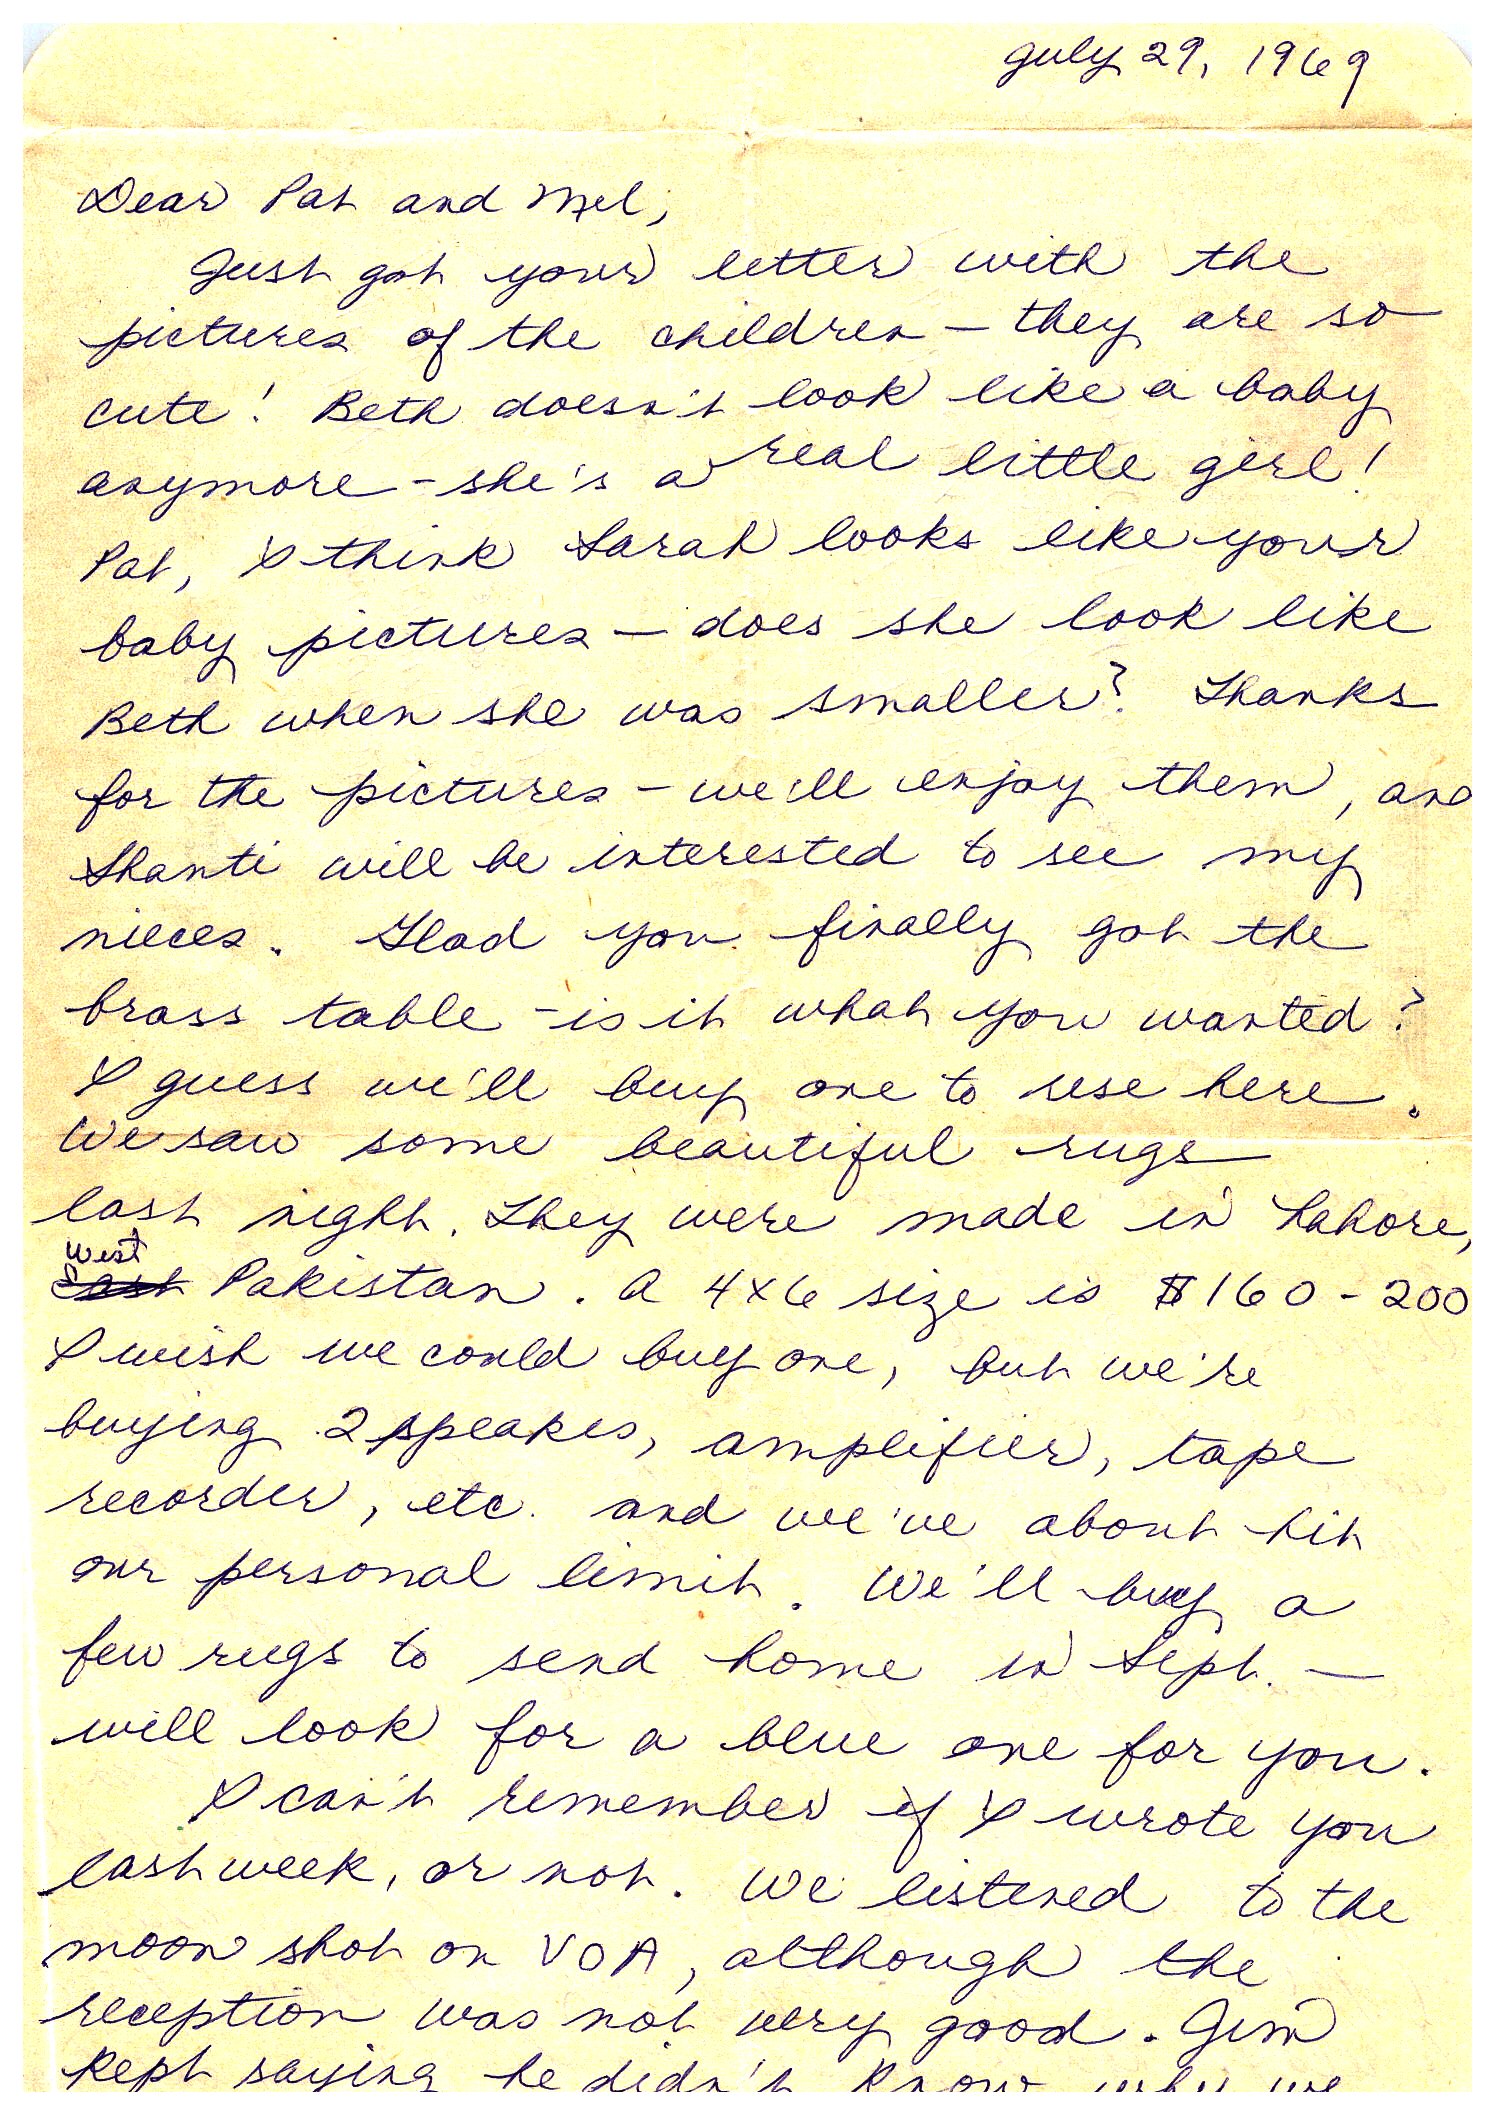 July 29, 1969
Dear Pat and Mel,
Just got your letter with the
pictures of the children — they are so
cute! Beth doesn't look like a baby
anymore - she's a real little girl!
Pat, I think Sarah looks like your
baby pictures — does she look like
Beth when she was smaller? Thanks
for the pictures - we'll enjoy them, and
Shanti will be interested to see my
nieces. Glad you finally got the
brass table - is it what you wanted?
I guess we'll buy one to use here.
We saw some beautiful rugs
last night. They were made in Lahore,
West
East Pakistan. A 4x6 size is $160 - 200
I wish we could buy one, but we're
buying 2 speakers, amplifier, tape
recorder, etc. and we've about hit
our personal limit. We'll buy a
few rugs to send home in Sept. —
will look for a blue one for you.
I can't remember if I wrote you
last week, or not. We listened to the
moon shot on VOA, although the
reception was not very good. Jim
kept saying he didn't know why we